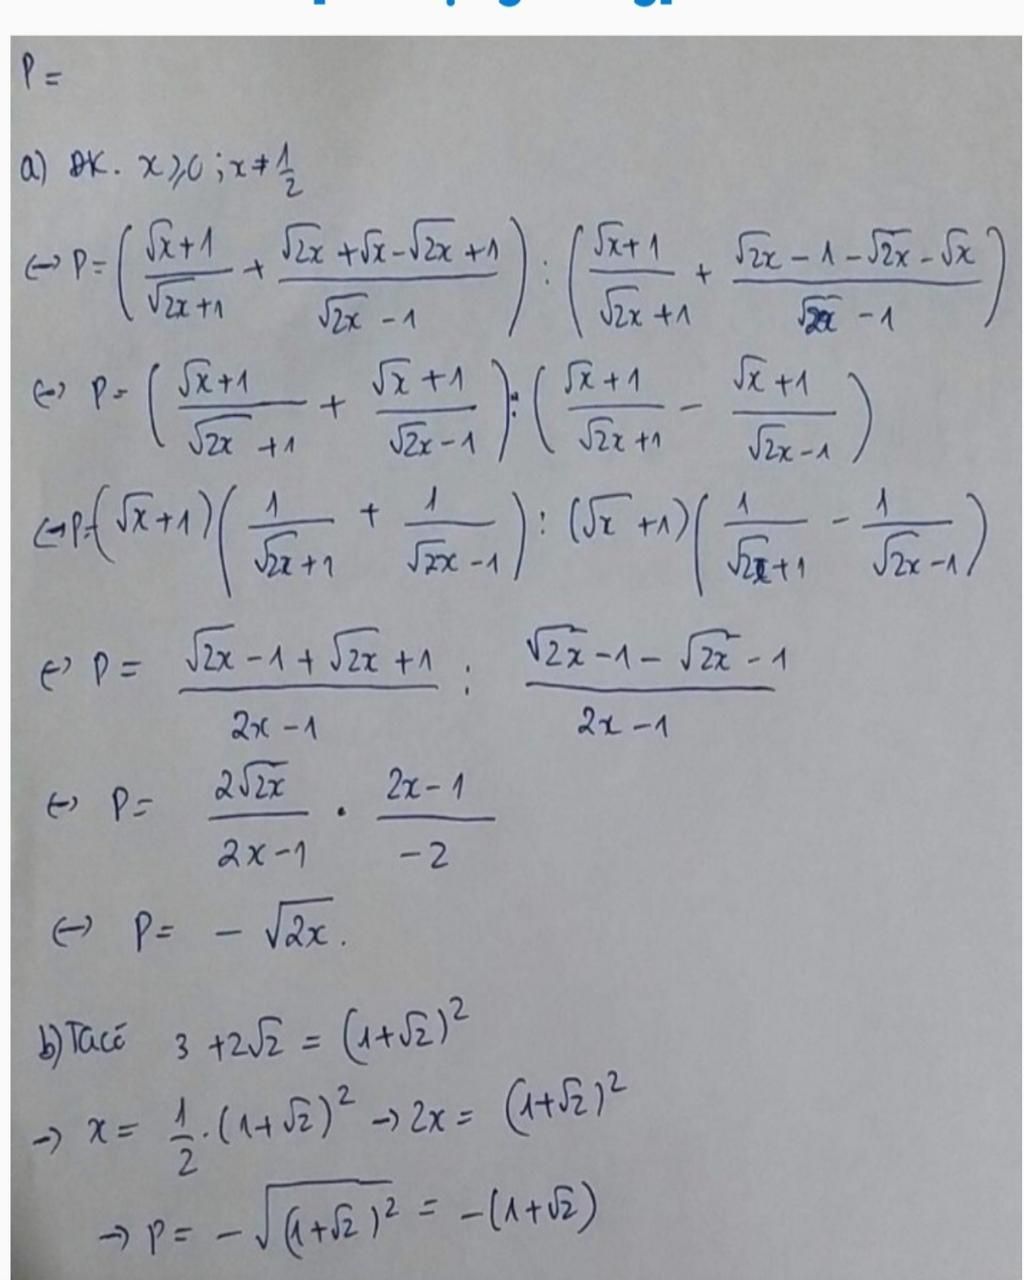 P =
a) ĐK. x ⩾ 0 ; x ≠ 1/2
↔ P = ( (√x + 1)/(√2x + 1) + (√2x + √x - √2x + 1)/(√2x - 1) ) : ( (√x + 1)/(√2x + 1) + (√2x - 1 - √2x - √x)/(√2x - 1) )
↔ P = ( (√x + 1)/(√2x + 1) + (√x + 1)/(√2x - 1) ) : ( (√x + 1)/(√2x + 1) - (√x + 1)/(√2x - 1) )
↔ P = (√x + 1) ( 1/(√2x + 1) + 1/(√2x - 1) ) : (√x + 1) ( 1/(√2x + 1) - 1/(√2x - 1) )
↔ P = (√2x - 1 + √2x + 1)/(2x - 1) : (√2x - 1 - √2x - 1)/(2x - 1)
↔ P = 2√2x/(2x - 1) . (2x - 1)/(-2)
↔ P = - √2x.
b) Ta có 3 + 2√2 = (1 + √2)²
→ x = 1/2 . (1 + √2)² → 2x = (1 + √2)²
→ P = - √((1 + √2)²) = - (1 + √2)